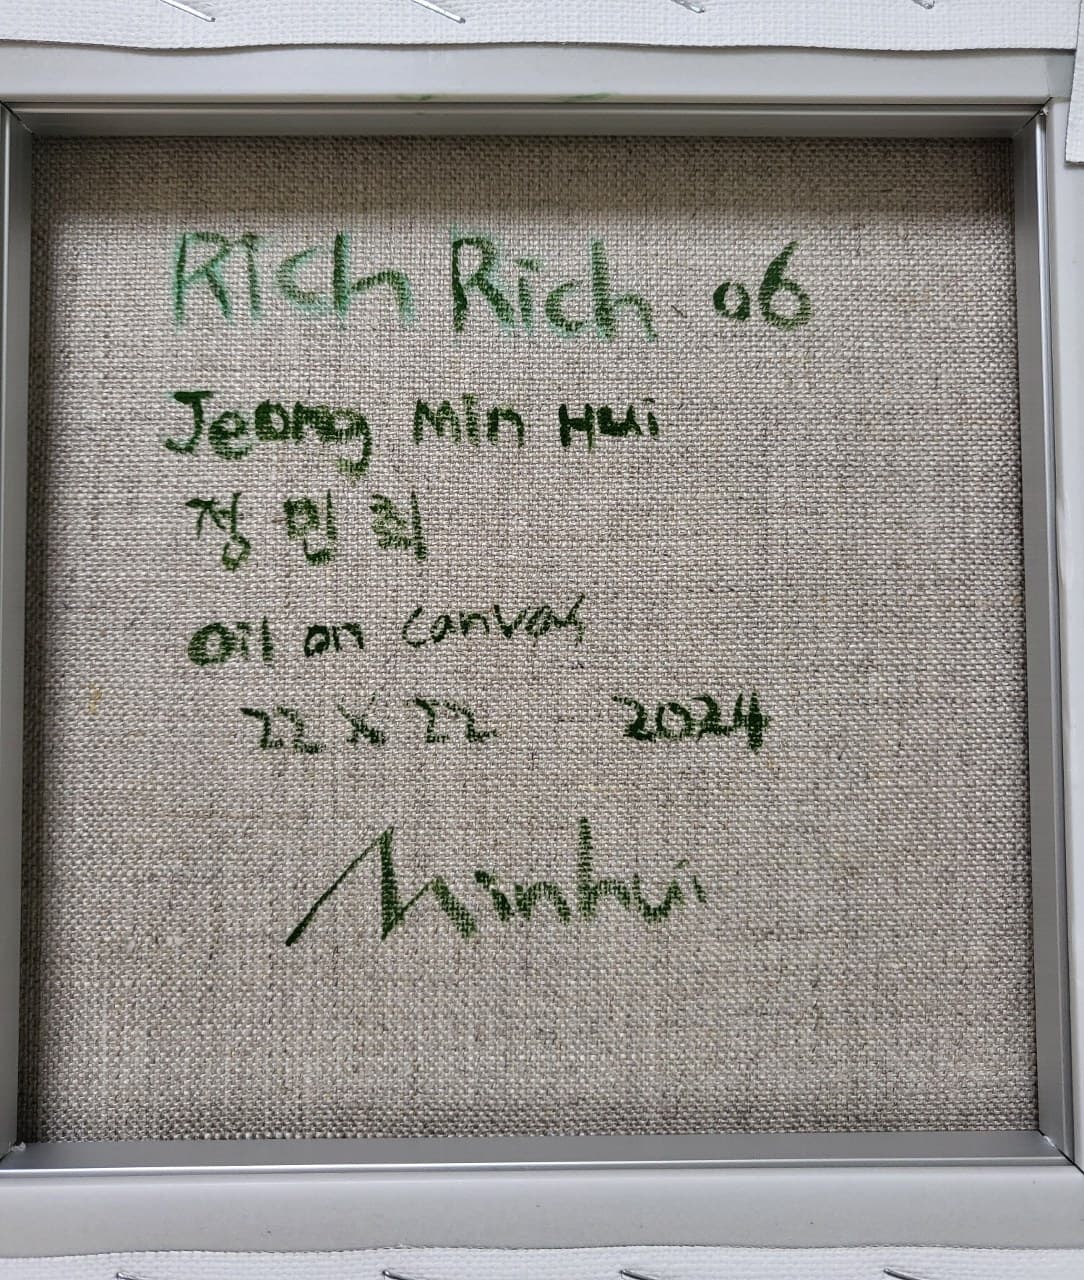 Rich Rich 06
Jeong Min Hui
정민희
Oil on canvas
22 x 22 2024
Minhui